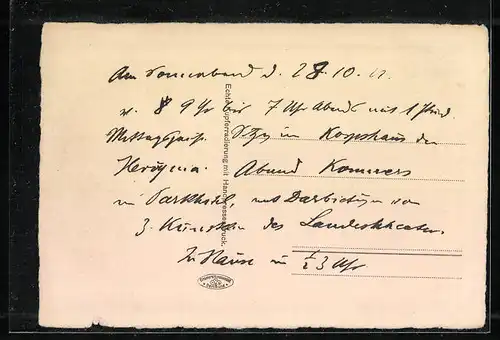 Am Sonnabend d. 28.10.
v. 9 Uhr bis 7 Uhr Abend mit 1 stünd.
Mittagspause. Sitzg im Korpshaus der
Hercynia. Abend Kommers
im Parkhotel, mit Darbietungen von
3. Künstlern des Landestheaters.
Zu Hause um ½ 3 Uhr
Echte Kupferradierung mit Handpressendruck.